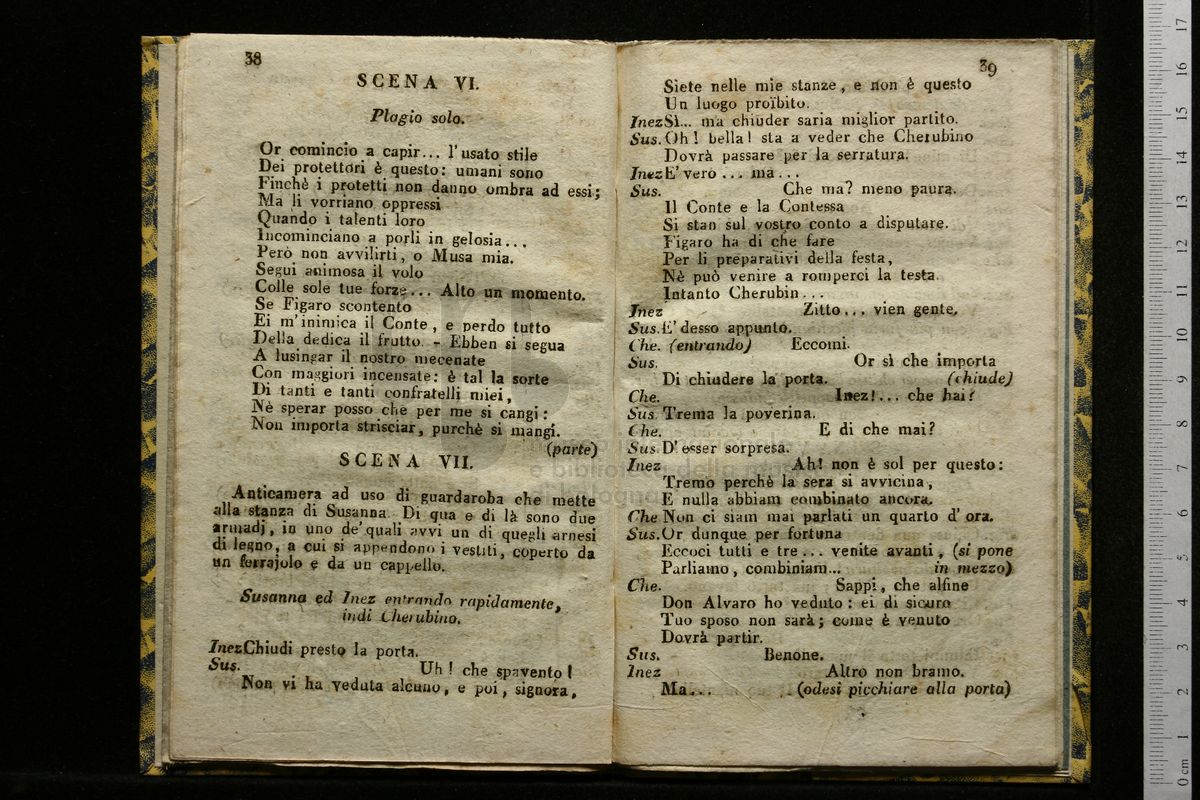 38
SCENA VI.
Plagio solo.
Or comincio a capir... l'usato stile
Dei protettori è questo: umani sono
Finchè i protetti non danno ombra ad essi;
Ma li vorriano oppressi
Quando i talenti loro
Incominciano a porli in gelosia...
Però non avvilirti, o Musa mia.
Segui animosa il volo
Colle sole tue forze... Alto un momento.
Se Figaro scontento
Ei m'inimica il Conte, e perdo tutto
Della dedica il frutto. - Ebben si segua
A lusingar il nostro mecenate
Con maggiori incensate: è tal la sorte
Di tanti e tanti confratelli miei,
Nè sperar posso che per me si cangi:
Non importa strisciar, purchè si mangi.
(parte)
SCENA VII.
Anticamera ad uso di guardaroba che mette
alla stanza di Susanna. Di qua e di là sono due
armadj, in uno de'quali avvi un di quegli arnesi
di legno, a cui si appendono i vestiti, coperto da
un ferrajolo e da un cappello.
Susanna ed Inez entrando rapidamente,
indi Cherubino.
Inez Chiudi presto la porta.
Sus. Uh! che spavento!
Non vi ha veduta alcuno, e poi, signora,
39
Siete nelle mie stanze, e non è questo
Un luogo proïbito.
Inez Sì... ma chiuder saria miglior partito.
Sus. Oh! bella! sta a veder che Cherubino
Dovrà passare per la serratura.
Inez E' vero... ma...
Sus. Che ma? meno paura.
Il Conte e la Contessa
Si stan sul vostro conto a disputare.
Figaro ha di che fare
Per li preparativi della festa,
Nè può venire a romperci la testa.
Intanto Cherubin...
Inez Zitto... vien gente.
Sus. E' desso appunto.
Che. (entrando) Eccomi.
Sus. Or sì che importa
Di chiudere la porta. (chiude)
Che. Inez!... che hai?
Sus. Trema la poverina.
Che. E di che mai?
Sus. D'esser sorpresa.
Inez Ah! non è sol per questo:
Tremo perchè la sera si avvicina,
E nulla abbiam combinato ancora.
Che Non ci siam mai parlati un quarto d'ora.
Sus. Or dunque per fortuna
Eccoci tutti e tre... venite avanti, (si pone
Parliamo, combiniam... in mezzo)
Che. Sappi, che alfine
Don Alvaro ho veduto: ei di sicuro
Tuo sposo non sarà; come è venuto
Dovrà partir.
Sus. Benone.
Inez Altro non bramo.
Ma... (odesi picchiare alla porta)
0 cm 1 2 3 4 5 6 7 8 9 10 11 12 13 14 15 16 17